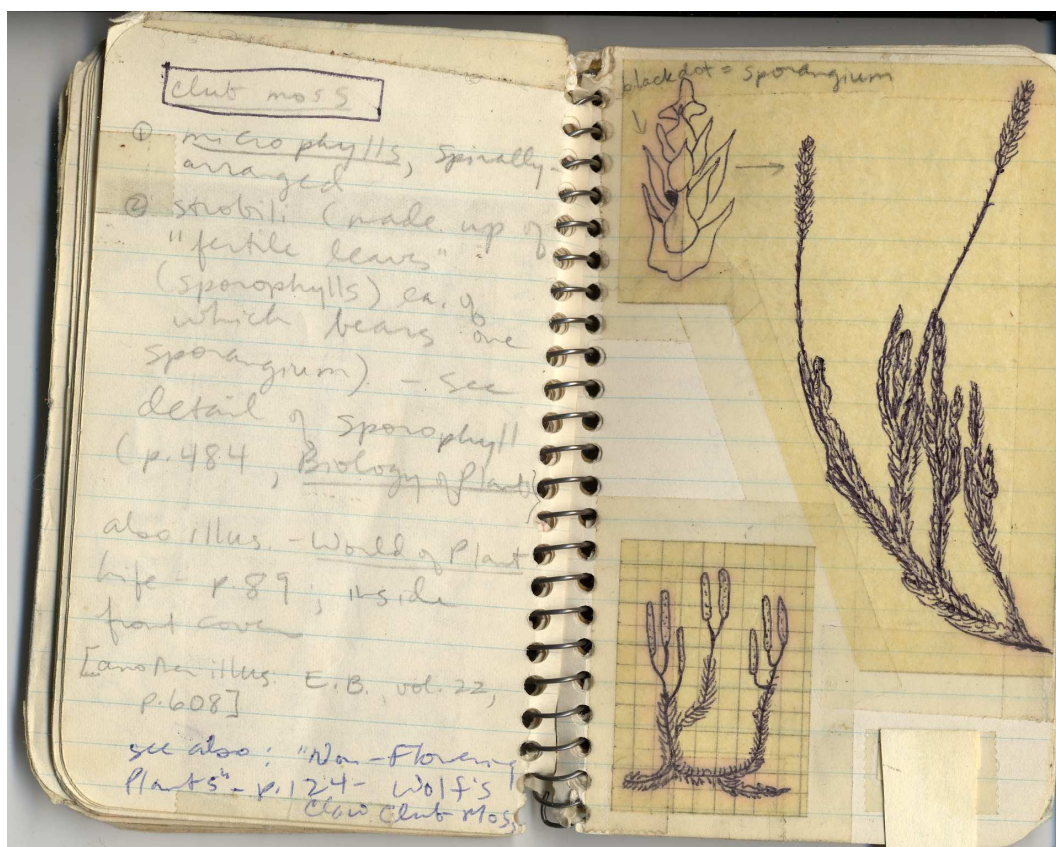 club moss
① microphylls, spirally-
arranged
② strobili (made up of
"fertile leaves"
(sporophylls) ea. of
which bears one
sporangium) - see
detail of sporophyll
(p.484, Biology of Plants)
also illus. - World of Plant
Life - p.89; inside
front cover
[another illus. E.B. vol. 22,
p.608]
see also: "Non-Flowering
Plants" - p.124 - Wolf's
Claw Club Moss
black dot = sporangium